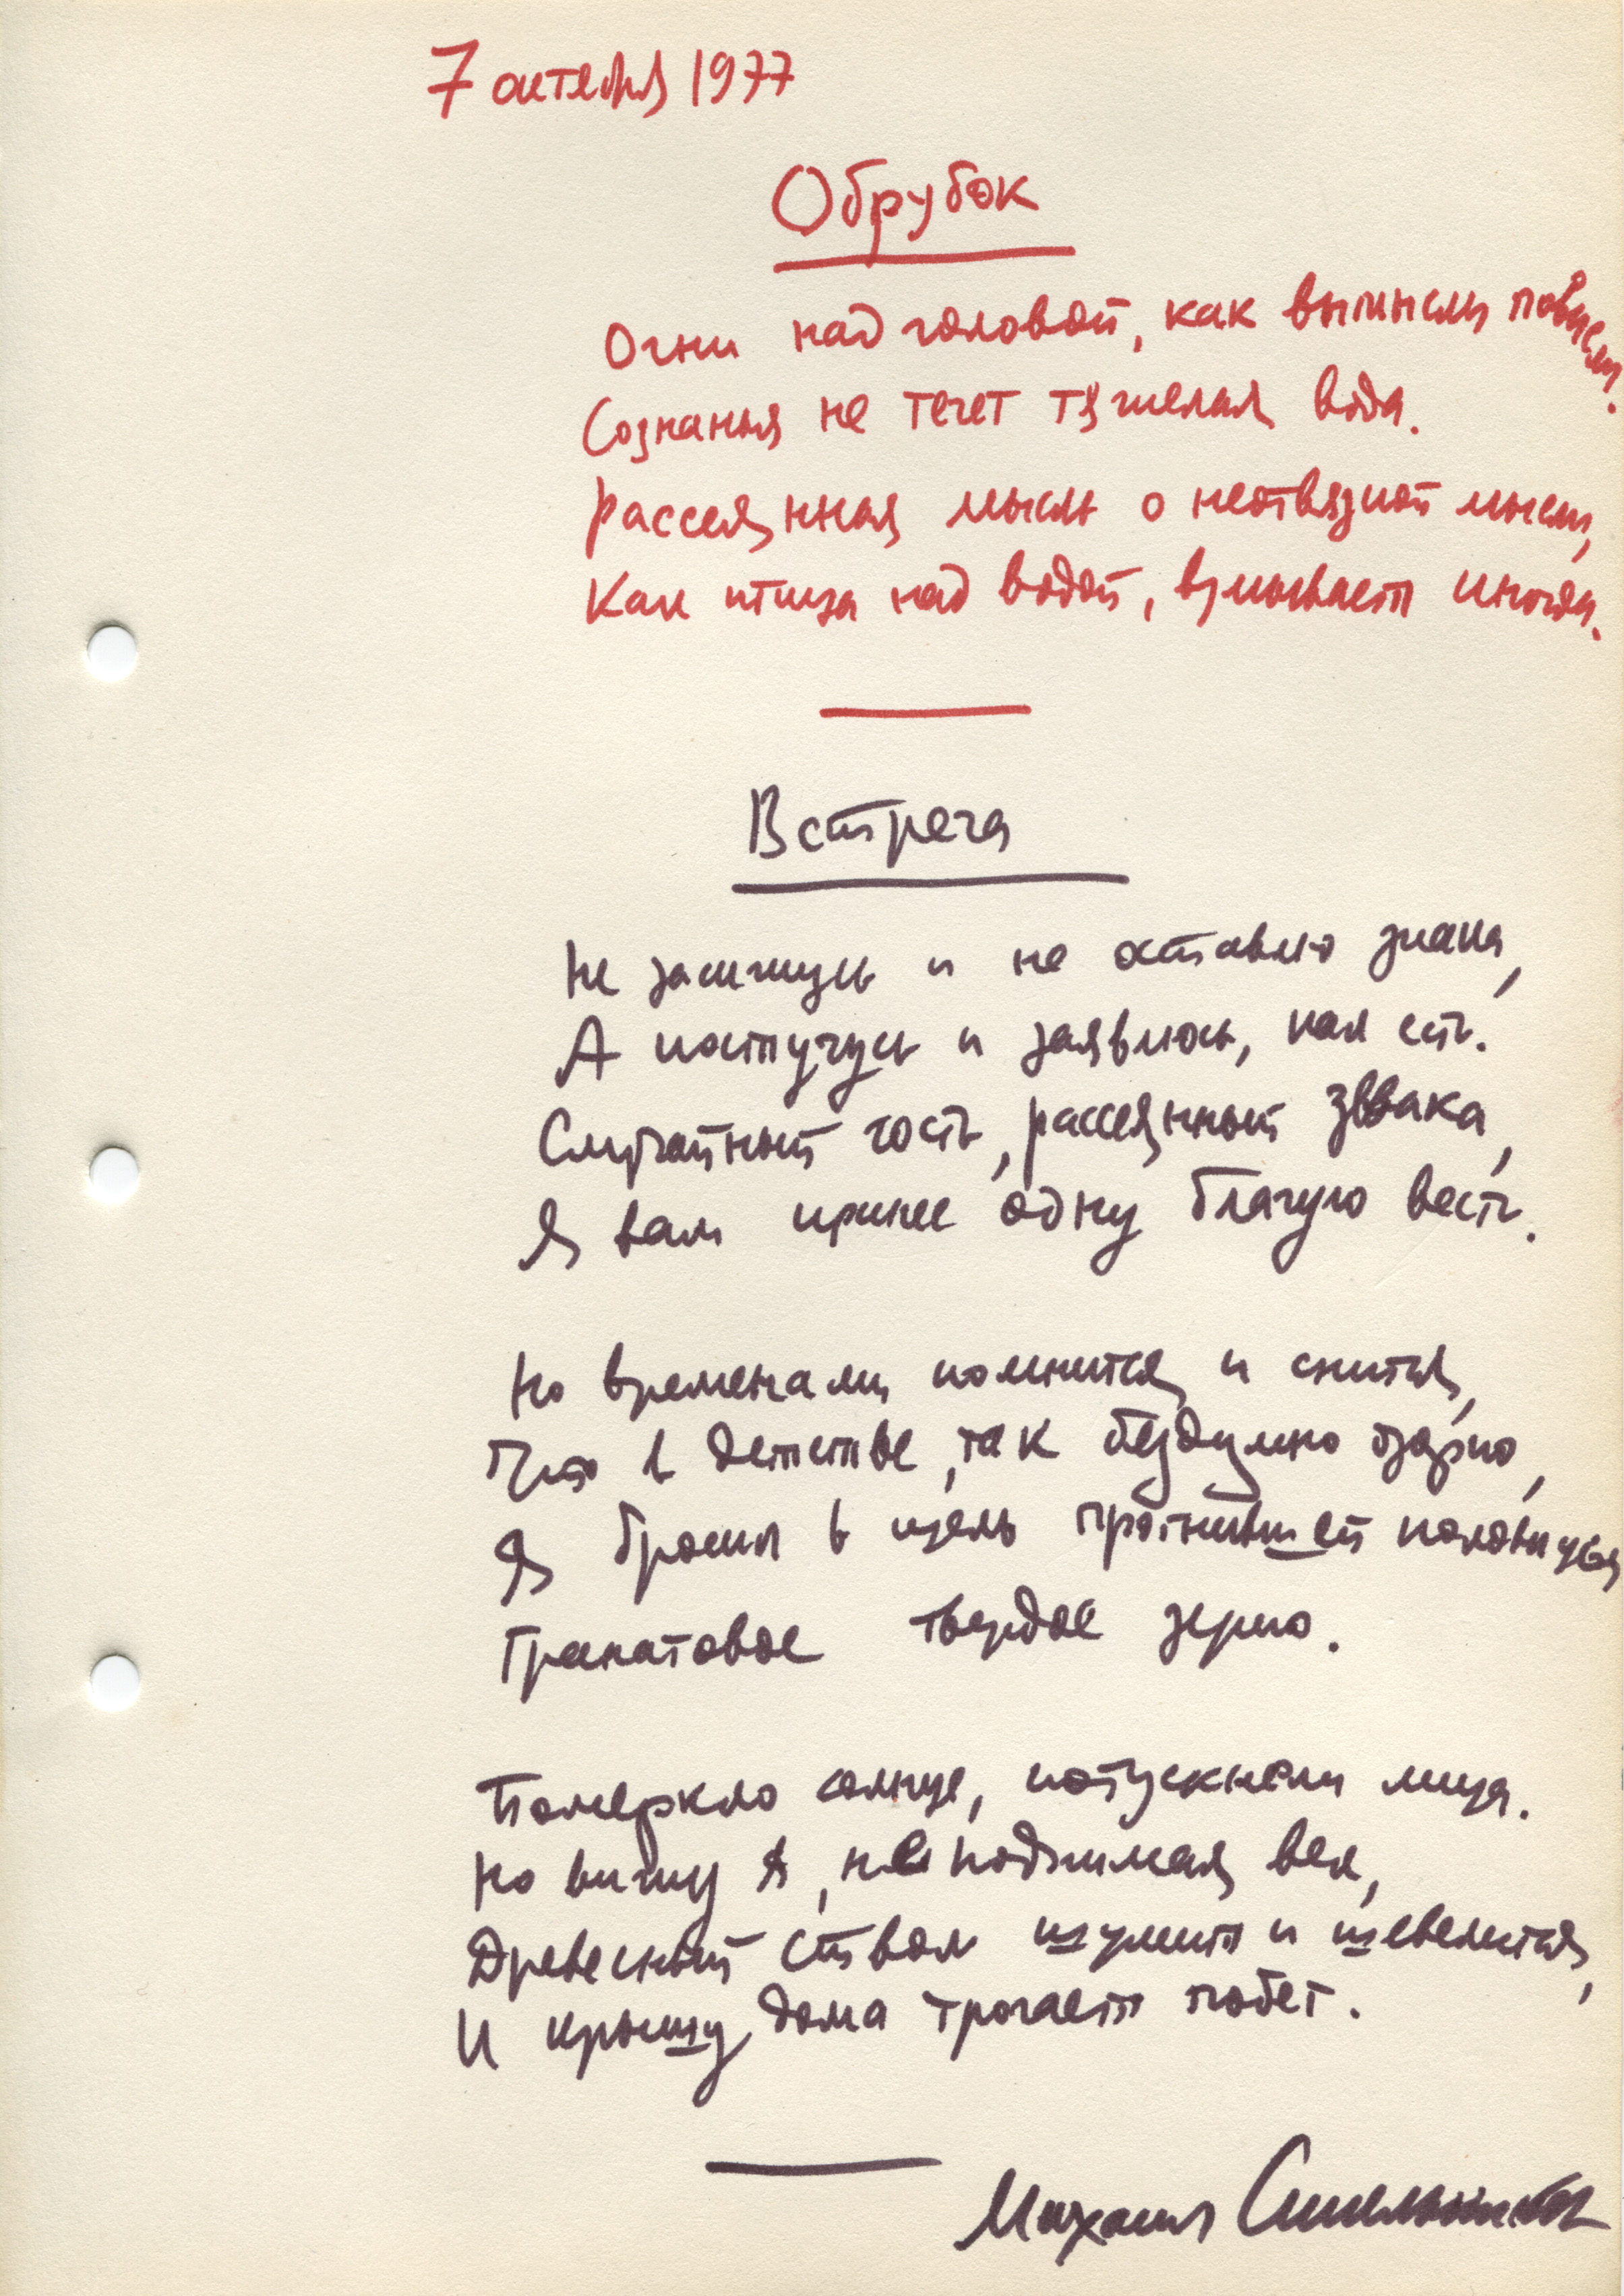 7 октября 1977
Обрубок
Огни над головой, как вымыслы повисли.
Сознанья не течет тяжелая вода.
Рассеянная мысль о неотвязной мысли,
Как птица над водой, взмывает иногда.
Встреча
Не заикнусь и не оставлю знака,
А постучусь и заявлюсь, как есть.
Случайный гость, рассеянный зевака,
Я вам принес одну благую весть.
Но временами помнится и снится,
Что в детстве, так бездумно озорно,
Я бросил в щель прогнившей половицы
Гранатовое твердое зерно.
Померкло солнце, потускнели лица.
Но вижу я, не поднимая век,
Древесный ствол шумит и шевелится,
И крышу дома трогает побег.
Михаил Синельников